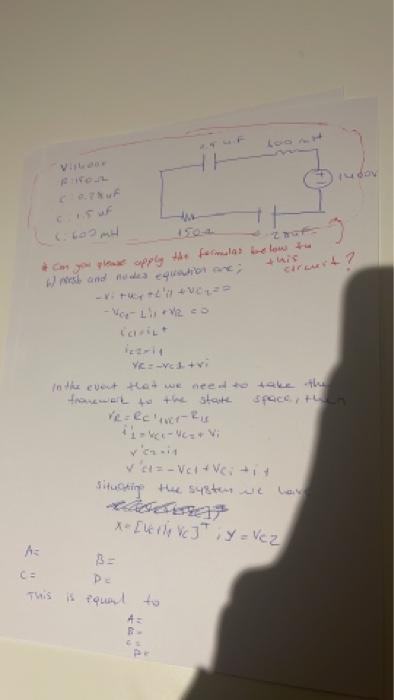 1.5 uF 600 mH
V: 1400V
R: 150Ω
C: 0.28uF
C: 1.5 uF
L: 602 mH
1400V
150Ω
0.28uF
* Can you please apply the formulas below to this circuit?
b) mesh and nodes equation are;
-Vi + Vc1 + L'i1 + VC2 = 0
-Vc1 - L'i1 + VR = 0
ic1 = iL +
ic2 = i1
VR = -Vc1 + Vi
In the event that we need to take the
framework to the state space, then
VR = RC'1Vc1 - R i1
i'1 = Vc1 - Vc2 + Vi
V'c2 = i1
V'c1 = -Vc1 + Vci + i1
Situating the system we have
X = [Vc1 i1 Vc]ᵀ ; y = Vc2
A =
B =
C =
D =
This is equal to
A =
B =
C =
D =